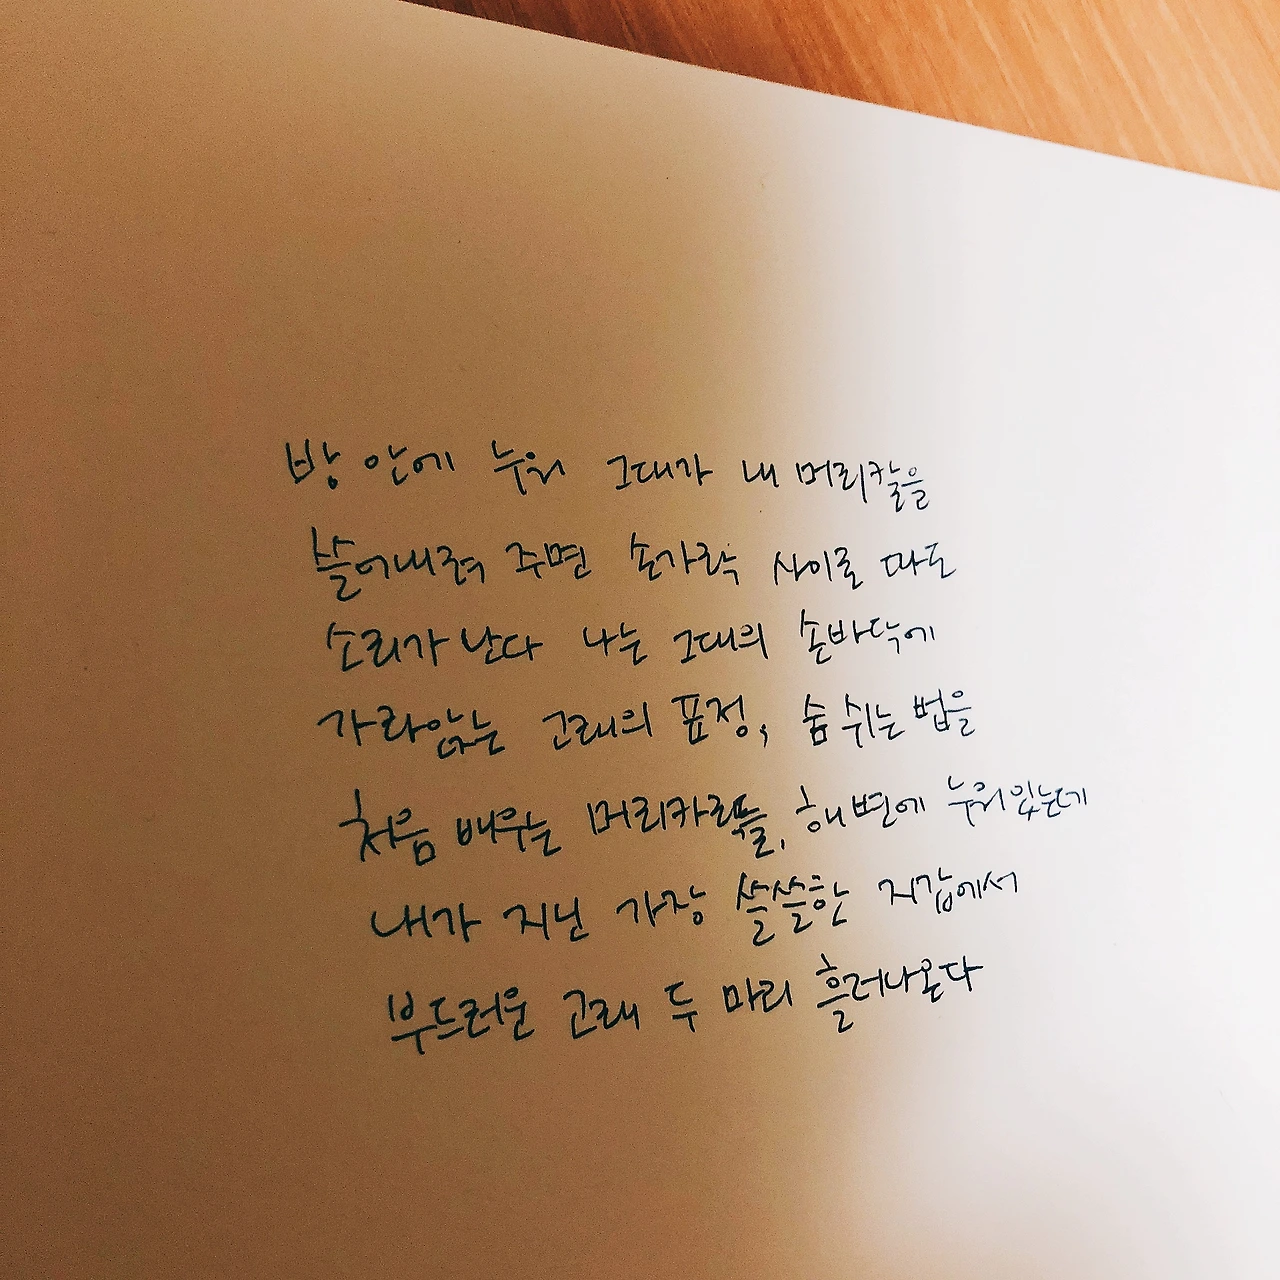 방 안에 누워 그대가 내 머리칼을
쓸어내려 주면 손가락 사이로 파도
소리가 난다 나는 그대의 손바닥에
가라앉는 고래의 표정, 숨 쉬는 법을
처음 배우는 머리카락들, 해변에 누워있는데
내가 지닌 가장 쓸쓸한 지갑에서
부드러운 고래 두 마리 흘러나온다